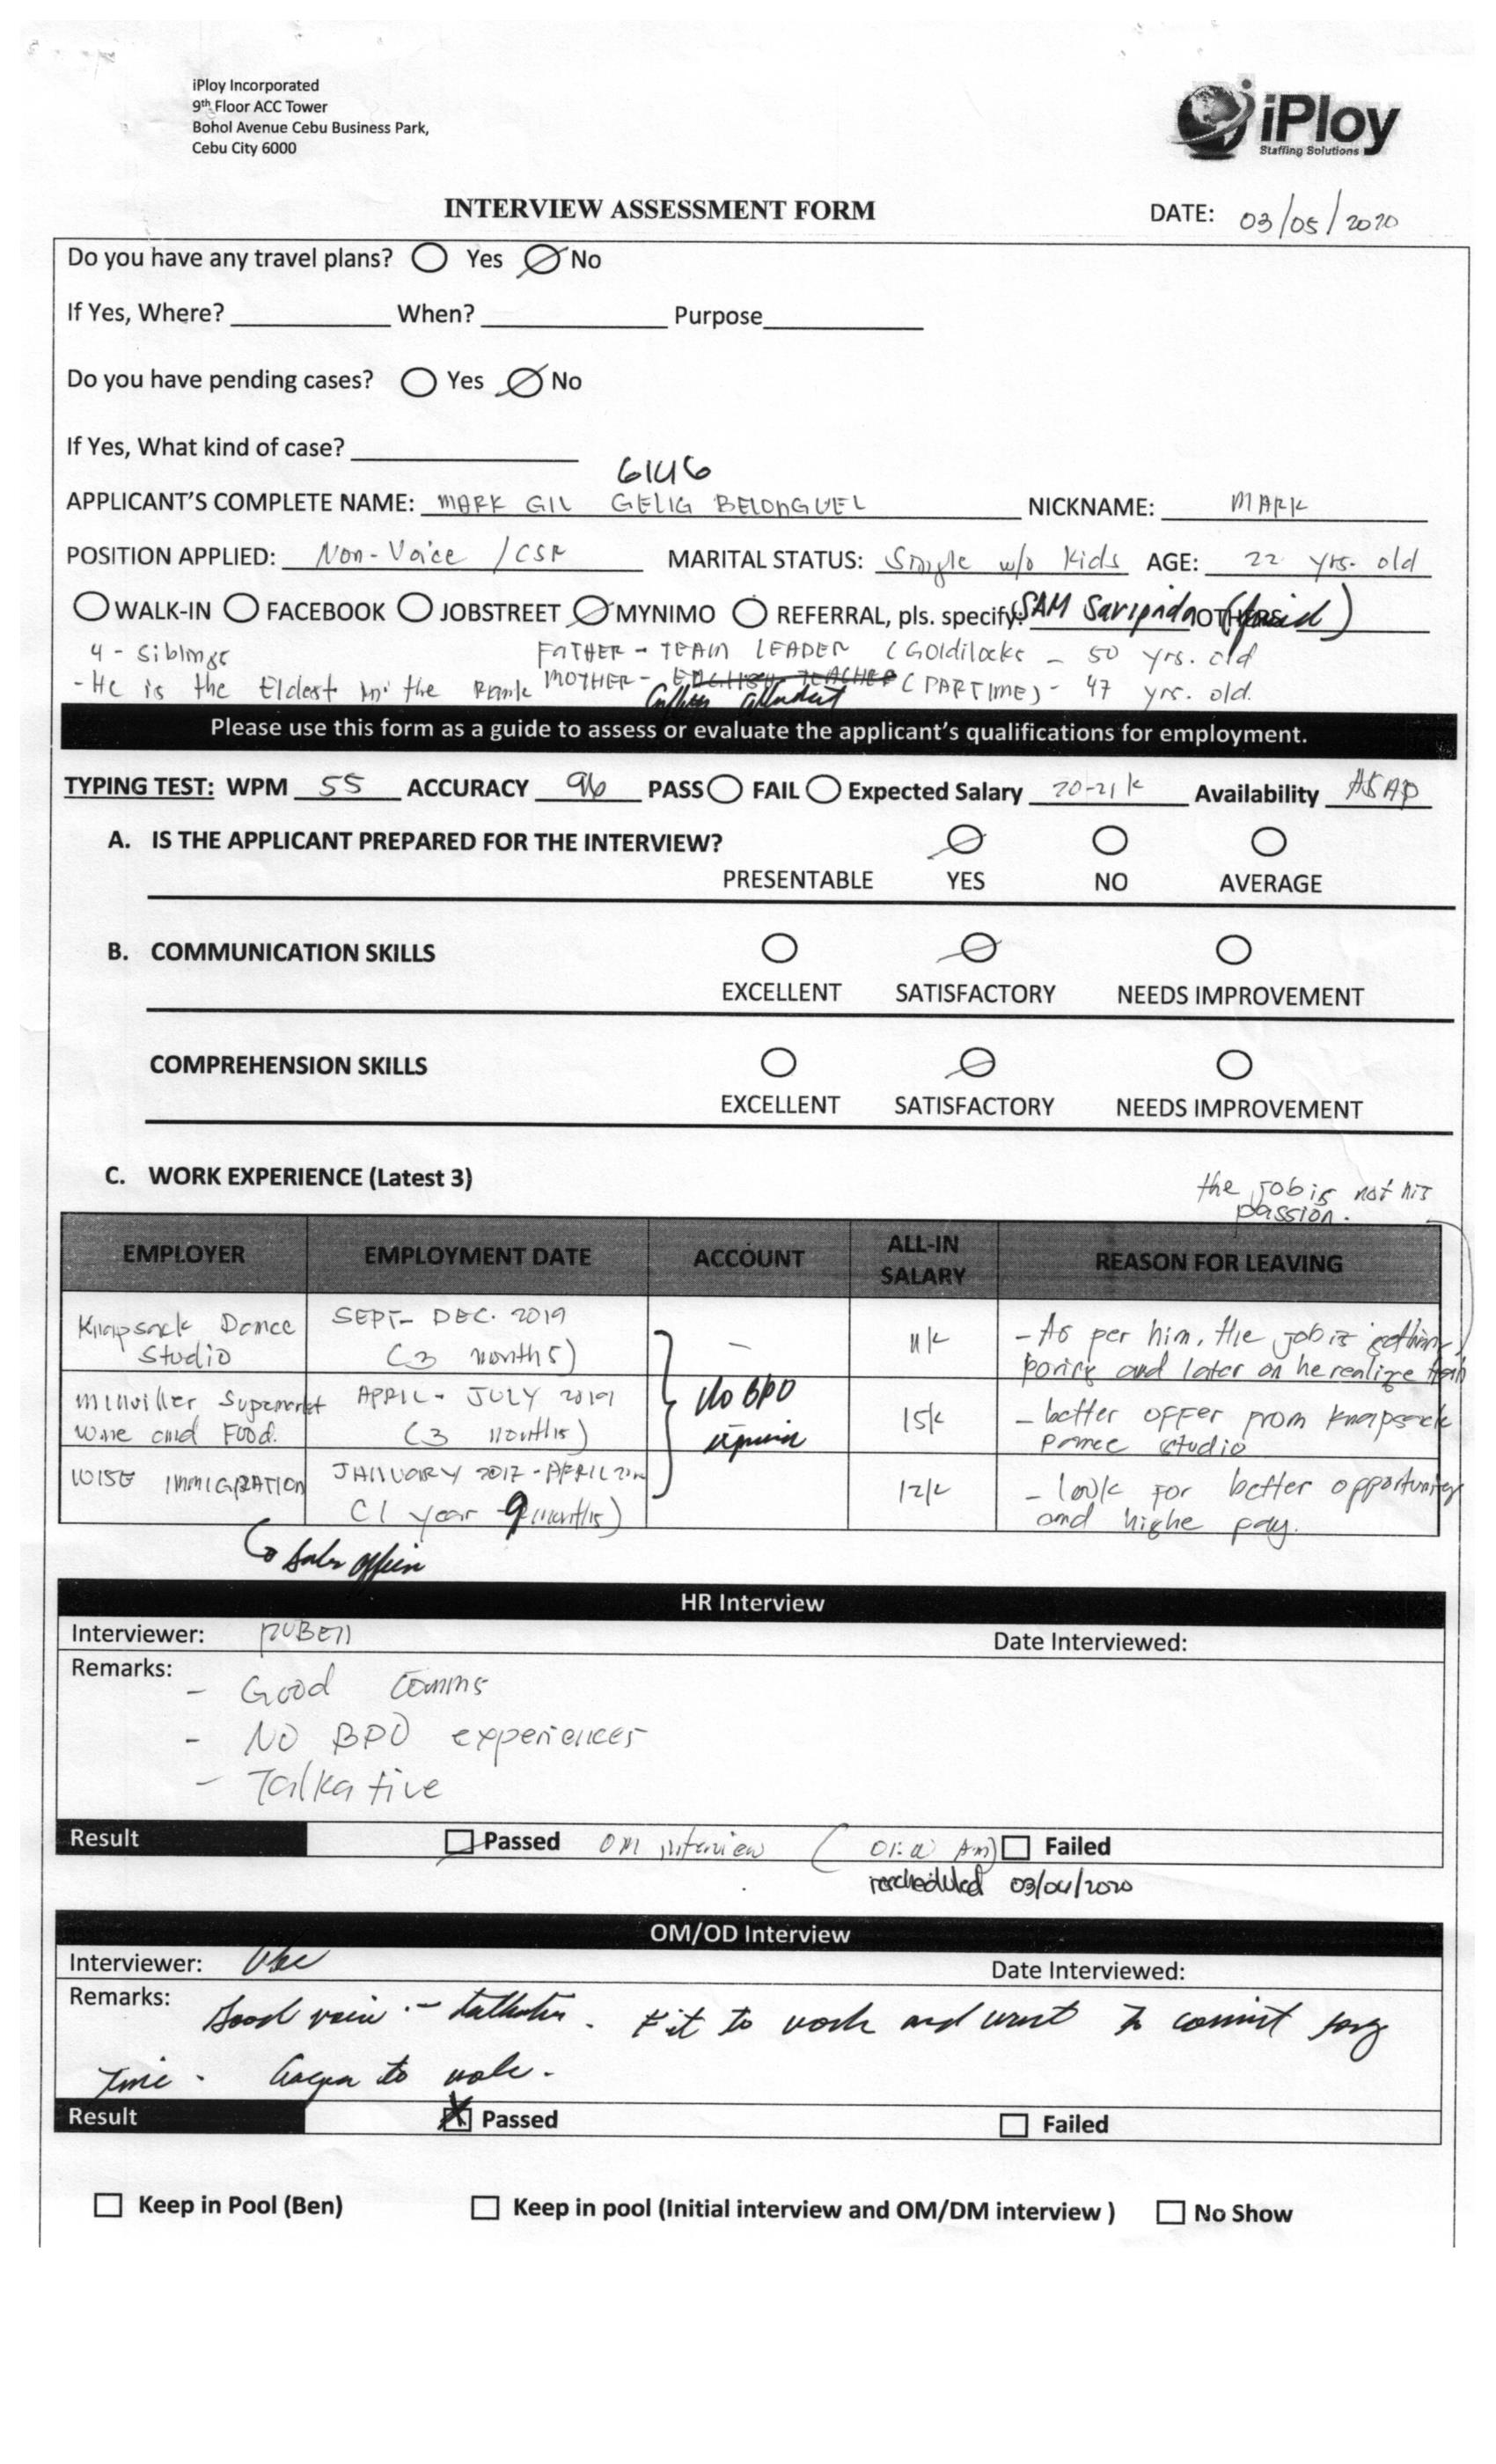 iPloy Incorporated
9th Floor ACC Tower
Bohol Avenue Cebu Business Park,
Cebu City 6000
iPloy
Staffing Solutions
INTERVIEW ASSESSMENT FORM DATE: 03/05/2020
Do you have any travel plans? Yes No
If Yes, Where? When? Purpose
Do you have pending cases? Yes No
If Yes, What kind of case?
6146
APPLICANT'S COMPLETE NAME: MARK GIL GELIG BELONGUEL NICKNAME: MARK
POSITION APPLIED: Non-Voice / CSR MARITAL STATUS: Single w/o Kids AGE: 22 yrs. old
WALK-IN FACEBOOK JOBSTREET MYNIMO REFERRAL, pls. specify: SAM OTHERS
4 - Siblings FATHER - TEAM LEADER (Goldilocks - 50 yrs. old
- He is the Eldest in the Rank MOTHER - ENGLISH TEACHER (PARTIME) - 47 yrs. old.
Please use this form as a guide to assess or evaluate the applicant's qualifications for employment.
TYPING TEST: WPM 55 ACCURACY 96 PASS FAIL Expected Salary 20-21k Availability ASAP
A. IS THE APPLICANT PREPARED FOR THE INTERVIEW?
PRESENTABLE YES NO AVERAGE
B. COMMUNICATION SKILLS
EXCELLENT SATISFACTORY NEEDS IMPROVEMENT
COMPREHENSION SKILLS
EXCELLENT SATISFACTORY NEEDS IMPROVEMENT
C. WORK EXPERIENCE (Latest 3)
the job is not his
passion.
EMPLOYER EMPLOYMENT DATE ACCOUNT ALL-IN SALARY REASON FOR LEAVING
Knapsack Dance SEPT- DEC. 2019 - 11k - As per him, the job is
Studio (3 months) and later on he realize
Supermarket APRIL - JULY 2019 No BPO 15k - better offer from Knapsack
wine and Food. (3 months) Dance studio
WISE IMMIGRATION JANUARY 2017 - APRIL 12k - look for better opportunity
(1 year 9 months) and highe pay.
HR Interview
Interviewer: RUBEN Date Interviewed:
Remarks:
- Good Comms
- NO BPO experiences
- Talkative
Result Passed OM interview Failed
rescheduled
OM/OD Interview
Interviewer: Date Interviewed:
Remarks: Good - . Fit to work and want to commit long
time. to work.
Result Passed Failed
Keep in Pool (Ben) Keep in pool (Initial interview and OM/DM interview ) No Show